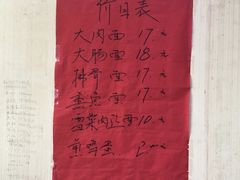 价目表
大肉面 17.元
大肠面 18.元
排骨面 17.元
面 17.元
雪菜肉丝面 10.元
煎鸡蛋 2元